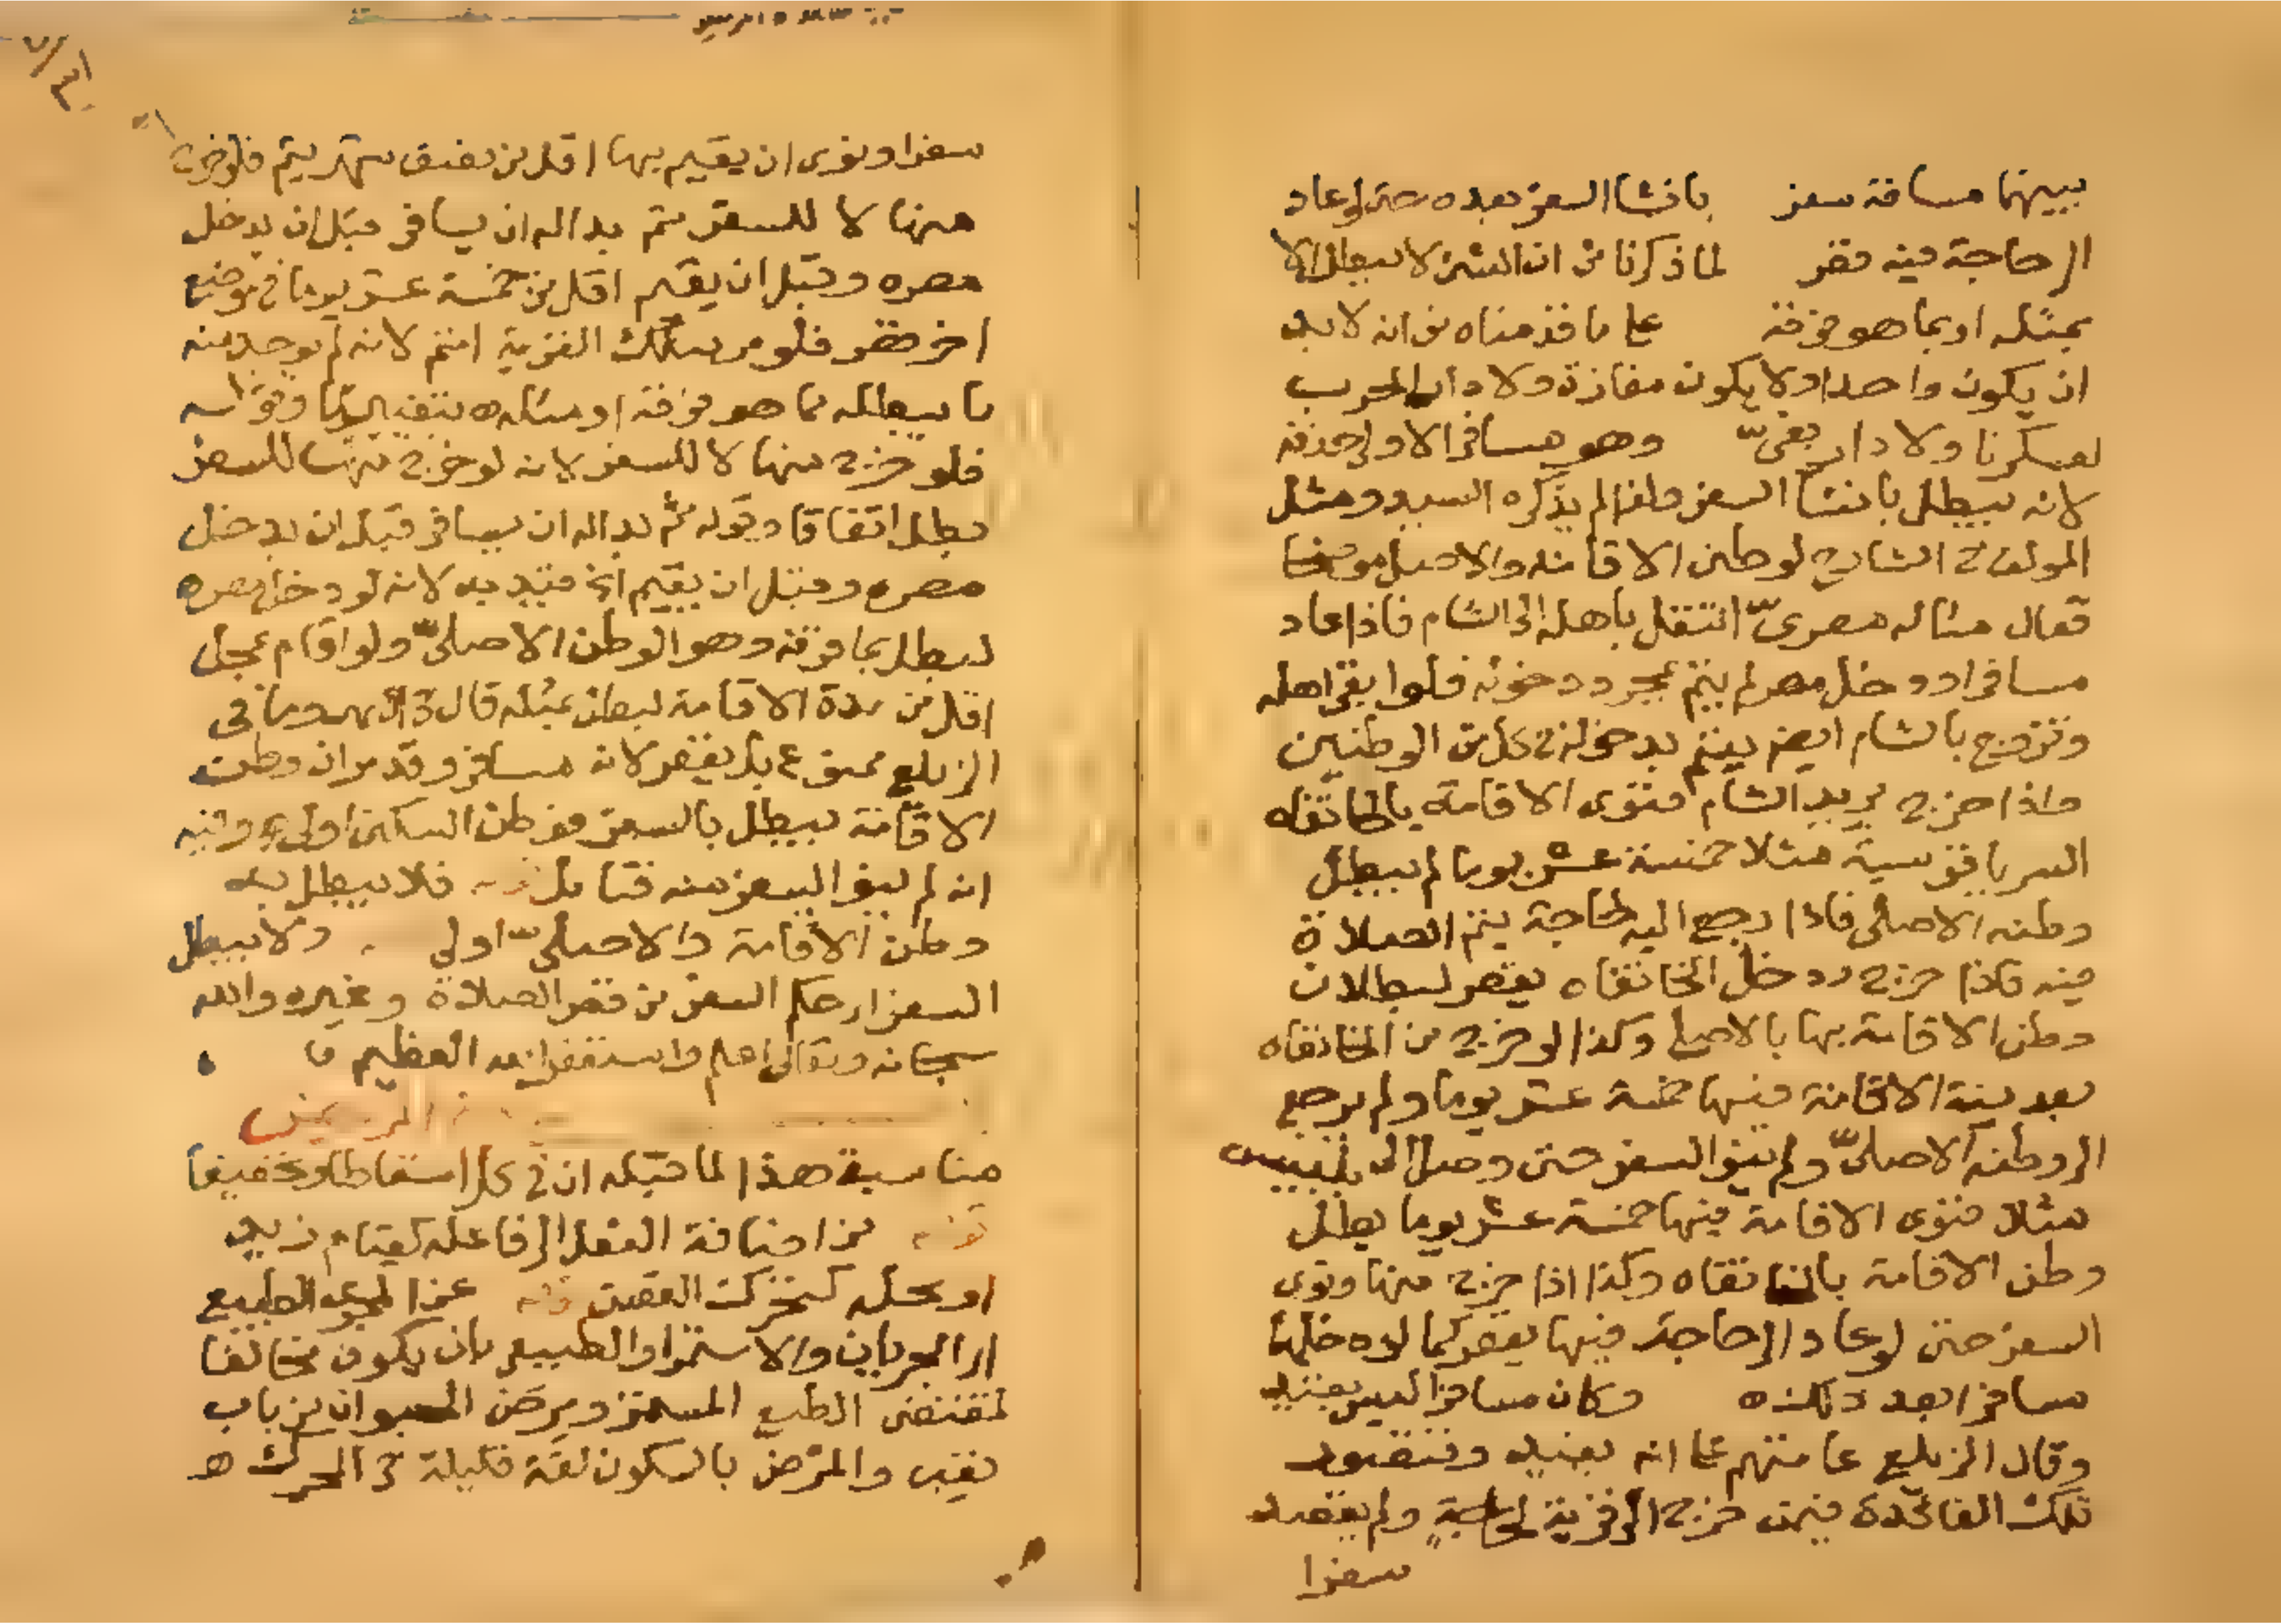 بينهما مسافة سفر بانشا السفر بعده حتى لو عاد
الى حاجة فيه قصر لما ذكرنا من ان الشئ لا يبطل الا
بمثله او بما هو فوقه على ما قدمناه من انه لا بد
ان يكون واحدا ولا يكون مفازة ولا دار الحرب
لعسكرنا ولا دار بغى وهو مسافر الاولى حذفه
لانه يبطل بانشا السفر ولهذا لم يذكره السيد ومثل
المولف في الشارح لوطن الاقامة والاصلي موضحا
فقال مثاله مصرى انتقل باهله الى الشام فاذا عاد
مسافرا ودخل مصر لم يتم بمجرد دخوله فلو ابقى اهله
وتزوج بالشام ايضا يتم بدخوله في كل من الوطنين
واذا خرج يريد الشام فنوى الاقامة بالخانقاه
السرياقوسية مثلا خمسة عشر يوما لم يبطل
وطنه الاصلى فاذا رجع اليه لحاجة يتم الصلاة
فيه فاذا خرج ودخل الخانقاه يقصر لبطلان
وطن الاقامة بها بالاصلى وكذا لو خرج من الخانقاه
بعد نية الاقامة فيها خمسة عشر يوما ولم يرجع
الى وطنه الاصلى ولم ينو السفر حتى وصل الى بلبيس
مثلا فنوى الاقامة فيها خمسة عشر يوما بطل
وطن الاقامة بالخانقاه وكذا اذا خرج منها ونوى
السفر حتى لو عاد الى حاجة فيها يقصر كما لو دخلها
مسافرا بعد ذلك ه وكان مسافرا ليس بقيد
وقال الزيلعى عامتهم على انه يفيد
تلك الفائدة فيمن خرج الى قرية لحاجة ولم يقصد
سفرا
سفرا ونوى ان يقيم بها اقل من نصف شهر يتم فلو خرج
منها لا للسفر ثم بدا له ان يسافر قبل ان يدخل
مصره وقبل ان يقيم اقل من خمسة عشر يوما في موضع
اخر قصر فلو مر بتلك القرية اتم لانه لم يوجد منه
ما يبطله مما هو فوقه او مثله ه وقوله
فلو خرج منها لا للسفر لانه لو خرج منها للسفر
بطل اتفاقا وقوله ثم بدا له ان يسافر قبل ان يدخل
مصره وقبل ان يقيم الخ قيد به لانه لو دخل مصره
لبطل بما فوقه وهو الوطن الاصلى ولو اقام بمحل
اقل من مدة الاقامة لبطل بمثله قال في النهر وما في
الزيلعى ممنوع بل يقصر لانه مسافر وقد مر ان وطن
الاقامة يبطل بالسفر فوطن السكنى اولى
انه لم ينو السفر منه فتامل قوله فلا يبطل به
وطن الاقامة والاصلى اولى ولا يبطل
السفر اى حكم السفر من قصر الصلاة وغيره والله
سبحانه وتعالى اعلم واستغفر الله العظيم
المريض
مناسبة هذا لما قبله ان في كل اسقاطا وتخفيفا
قوله من اضافة الفعل الى فاعله كقيام زيد
او محله كتحرك الغصن قوله عن المجرى الطبيعى
اى الجريان والاستمرار الطبيعى بان يكون مخالفا
لمقتضى الطبع المستمر ومرض الحيوان من باب
تعب والمرض بالسكون لغة قليلة